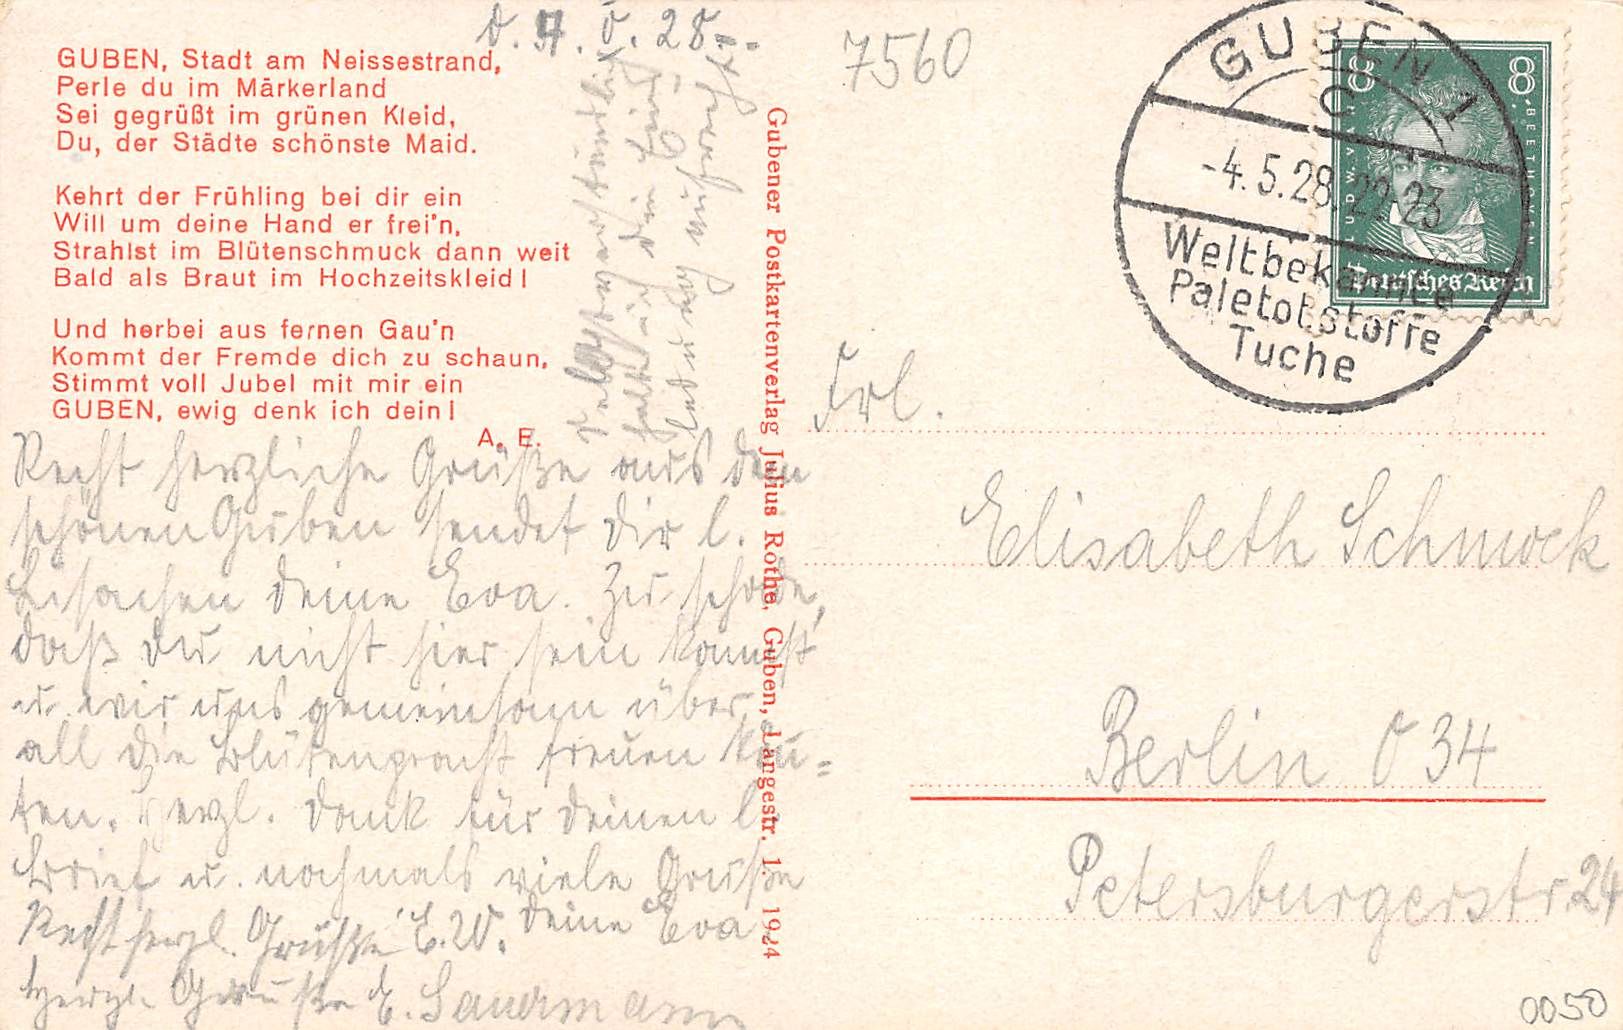 GUBEN, Stadt am Neissestrand,
Perle du im Märkerland
Sei gegrüßt im grünen Kleid,
Du, der Städte schönste Maid.
Kehrt der Frühling bei dir ein
Will um deine Hand er frei'n,
Strahlst im Blütenschmuck dann weit
Bald als Braut im Hochzeitskleid!
Und herbei aus fernen Gau'n
Kommt der Fremde dich zu schaun,
Stimmt voll Jubel mit mir ein
GUBEN, ewig denk ich dein!
A. E.
d. 4. 5. 28.
Recht herzliche Grüße aus dem
schönen Guben sendet dir l.
deine Eva. Zu schade,
daß du nicht hier sein kannst
u. wir uns gemeinsam über
all die Blütenpracht freuen konn=
ten. Herzl. Dank für deinen l.
Brief u. nochmals viele Grüße
deine Eva.
Recht herzl. Grüße E. W.
Herzl. Grüße E. Sandmann
Selbstverständlich
Gubener Postkartenverlag Julius Rothe, Guben, Langestr. 1. 1924
7560
GUBEN 1
C
-4.5.28 22-23
Weltbekannte
Paletotstoffe
Tuche
8 8
LUDW. VAN BEETHOVEN
Deutsches Reich
Frl.
Elisabeth Schmock
Berlin O 34
Petersburgerstr. 24
0050